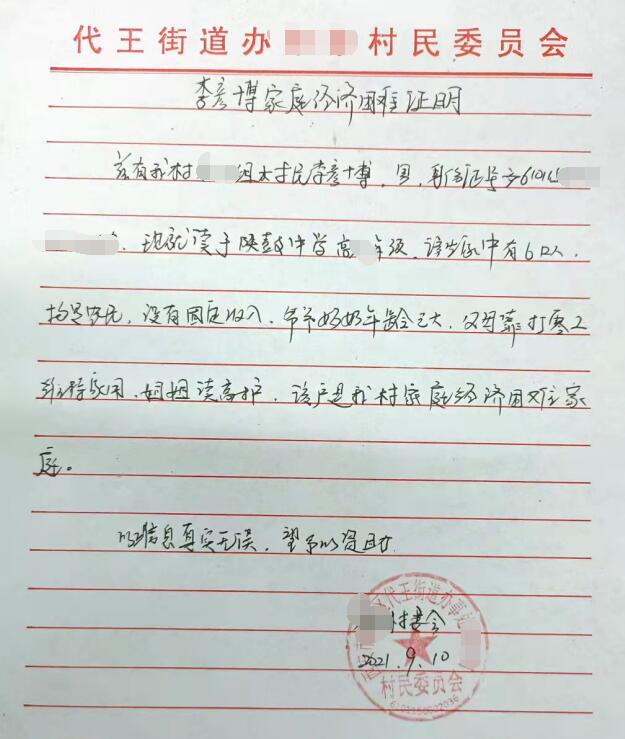 代王街道办 村民委员会
李彦博家庭经济困难证明
兹有我村 组村民李彦博,男,身份证号 610
现就读于陕鼓中学高 年级,该生家中有6口人,
均是农民,没有固定收入、爷爷奶奶年龄已大,父母靠打零工
维持家用,姐姐读高护,该户是我村家庭经济困难家
庭。
以上信息真实无误,望予以资助
村委会
2021.9.10
区代王街道办事处
村民委员会